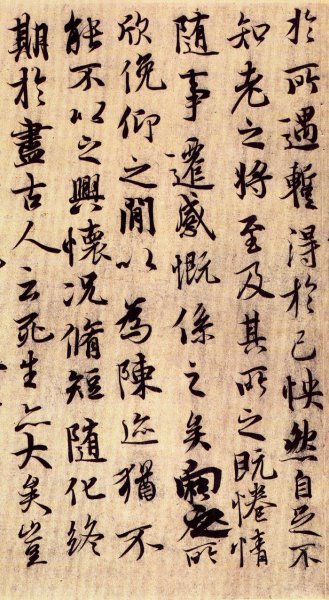 於所遇蹔得於己怏然自足不
知老之將至及其所之既惓情
隨事遷感慨係之矣向之所
欣俛仰之間以為陳迹猶不
能不以之興懷況脩短隨化終
期於盡古人云死生亦大矣豈